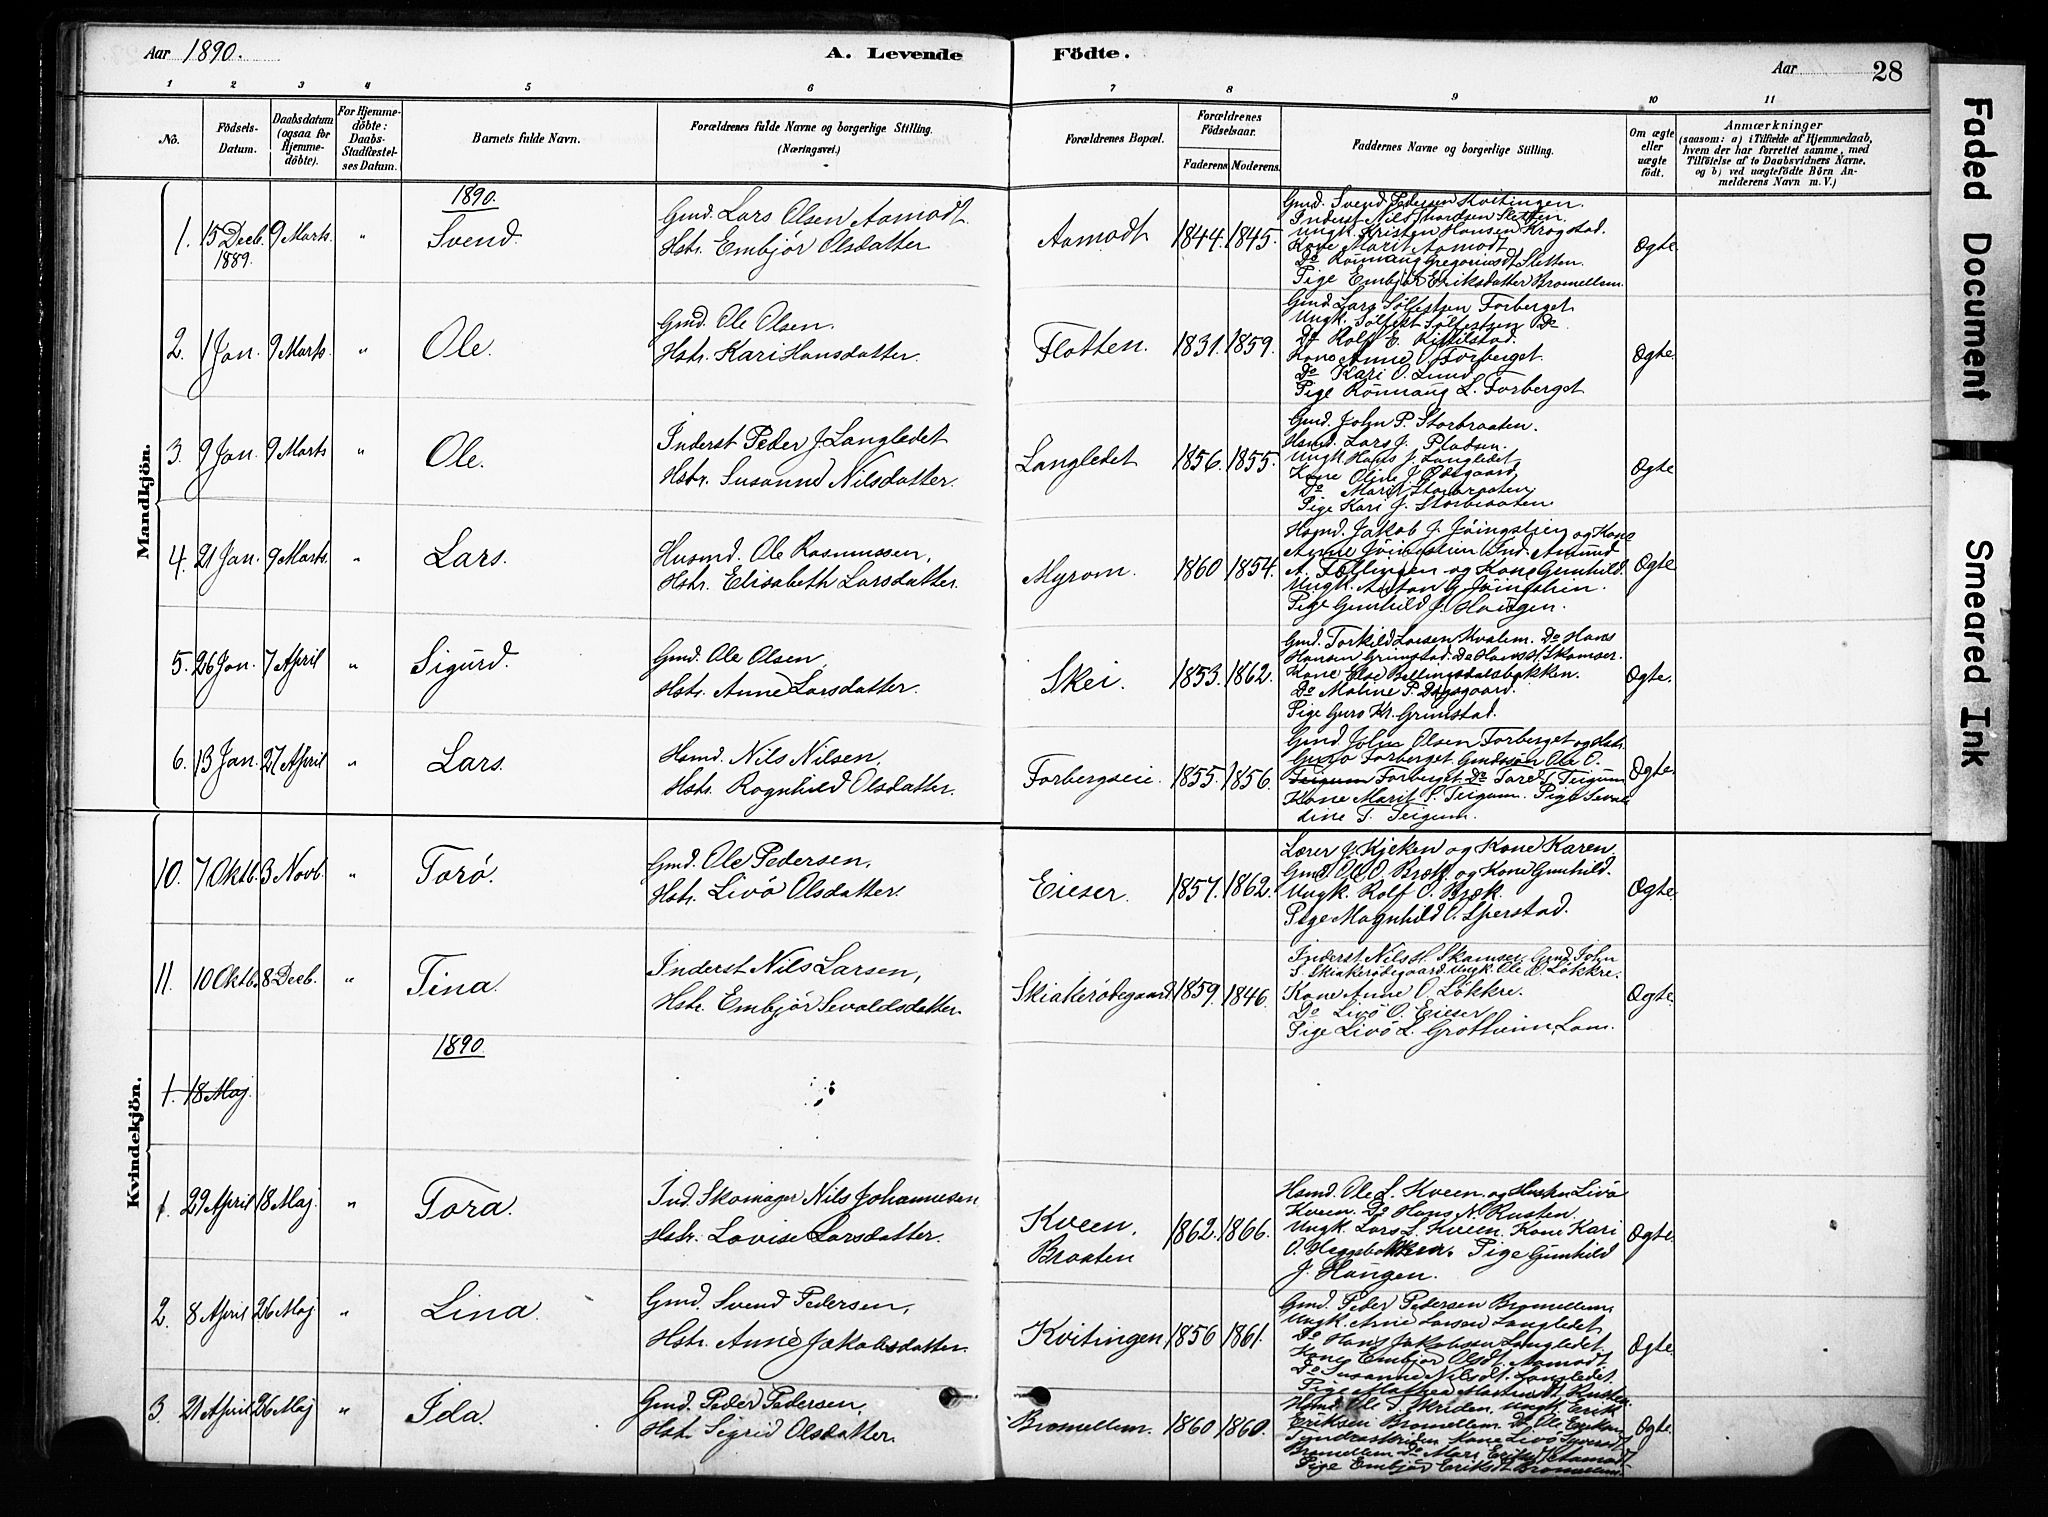 Aar 1890.
A. Levende Födte.
Aar
28
1 2 3 4 5 6 7 8 9 10 11
No.
Födsels-Datum.
Daabsdatum (ogsaa for Hjemmedöbte).
For Hjemmedöbte: Daabs-Stadfæstelses Datum.
Barnets fulde Navn.
Forældrenes fulde Navne og borgerlige Stilling. (Næringsvei.)
Forældrenes Bopæl.
Forældrenes Födselsaar.
Faderens Moderens.
Faddernes Navne og borgerlige Stilling.
Om ægte eller uægte födt.
Anmærkninger
(saasom: a) i Tilfælde af Hjemmedaab, hvem der har forrettet samme, med Tilföielse af to Daabsvidners Navne, og b) ved uægtefödte Börn Anmelderens Navn m. V.)
Mandkjön.
1890.
1. 15 Decb. 1889. 9 Marts. " Svend.
Gmd. Lars Olsen Aamodt
Hstr. Embjör Olsdatter
Aamodt 1844. 1845.
Gmd. Svend Pedersen Kvitingen.
Inderst Nils Thordsen Sletten.
Ungk. Kristen Hansen Krogstad.
Kone Marit Aamodt
Do Rönnaug Gregoriusdt Sletten.
Pige Embjör Eriksdatter Bromellem.
Ægte
2. 1 Jan. 9 Marts. " Ole.
Gmd. Ole Olsen.
Hstr. Kari Hansdatter.
Flatten. 1831. 1859.
Gmd. Lars Sölfestsen Forberget
Ungk. Sölfest Sölfestsen Do.
Do Rolf E. Kittilstad.
Kone Anne O. Forberget.
Do Kari O. Lund.
Pige Rönnaug L. Forberget
Ægte
3. 9 Jan. 9 Marts " Ole.
Inderst Peder J. Langledet
Hstr. Susanne Nilsdatter.
Langledet 1856. 1855.
Gmd. John P. Storbraaten.
Hsmd. Lars J. Pladsen.
Ungk. Hans J. Langledet
Kone Oline J. Ødegaard
Do Marit Storbraaten
Pige Kari J. Storbraaten
Ægte
4. 21 Jan. 9 Marts. " Lars.
Husmd. Ole Rasmussen,
Hstr. Elisabeth Larsdatter.
Myrom. 1860 1854.
Hsmd. Jakob J. Jöingslien og Kone
Anne Jöingslien Ind. Amund
A. og Kone Gunhild.
Ungk. Anton G. Jöingslien.
Pige Gunhild J. Haugen.
Ægte
5. 26 Jan. 7 April " Sigurd.
Gmd. Ole Olsen,
Hstr. Anne Larsdatter.
Skei. 1853. 1862.
Gmd. Torkild Larsen Kvalem. Do Hans
Hansen Grimstad. Do Hans H. Skamser.
Kone Else Bellingsdalsbakken.
Do Maline P. Dagsgaard.
Pige Guro Kr. Grimstad.
Ægte.
6. 13 Jan. 27 April " Lars.
Hsmd. Nils Nilsen,
Hstr. Rognhild Olsdatter.
Forbergseie. 1855. 1856.
Gmd. John Olsen Forberget og Hstr.
Guro Forberget. Gmdssön Ole O.
Teigum Forberget. Do Tore T. Teigum
Kone Marit S. Teigum. Pige Seval
dine T. Teigum.
Ægte.
Kvindekjön.
10. 7 Oktb. 3 Novb. " Torö.
Gmd. Ole Pedersen,
Hstr. Livö Olsdatter.
Eieser. 1857. 1862.
Lærer J. Kjeken og Kone Karen.
Gmd. Ole O. Bræk. og Kone Gunhild.
Ungk. Rolf O. Bræk.
Pige Magnhild O. Sperstad.
Ægte
11. 10 Oktb. 8 Decb. " Tina.
Inderst Nils Larsen,
Hstr. Embjör Sevaldsdatter.
Skiakerödegaard 1859. 1846.
Inderst Nils H. Skamser Gmd. John
S. Skiakerödegaard. Ungk. Ole O. Lökkre.
Kone Anne O. Lökkre.
Do Livö O. Eieser
Pige Livö L. Grotheim, Lom.
Ægte.
1890.
1. 18 Maj.
1. 29 April 18 Maj. " Tora.
Ind. Skomager Nils Johannesen
Hstr. Lovise Larsdatter.
Kveen, Braaten 1862. 1866.
Hsmd. Ole L. Kveen. og Hustru Livö
Kveen. Do Hans N. Rusten.
Ungk. Lars L. Kveen. Kone Kari
O. Heggebakken. Pige Gunhild
J. Haugen.
Ægte.
2. 8 April 26 Maj " Lina.
Gmd. Svend Pedersen,
Hstr. Anne Jakobsdatter.
Kvitingen 1856 1861.
Gmd. Peder Pedersen Bromellem,
Ungk. Arne Larsen Langledet
Do Hans Jakobsen Langledet.
Kone Embjör Olsdt. Aamodt
Do Susanne Nilsdt. Langledet.
Pige Mathea Mortensdt. Rusten
Ægte.
3. 21 April 26 Maj " Ida.
Gmd. Peder Pedersen,
Hstr. Sigrid Olsdatter.
Bromellem. 1860 1860.
Hsmd. Ole S. Skriden. Ungk. Erik
Eriksen Bromellem. Do Ole Eriksen
Kone Livö
Bromellem Do Mari Eriksdt. Aamodt
Pige Embjör Eriksdt. Bromellem.
Ægte.
Faded Document
Smeared Ink